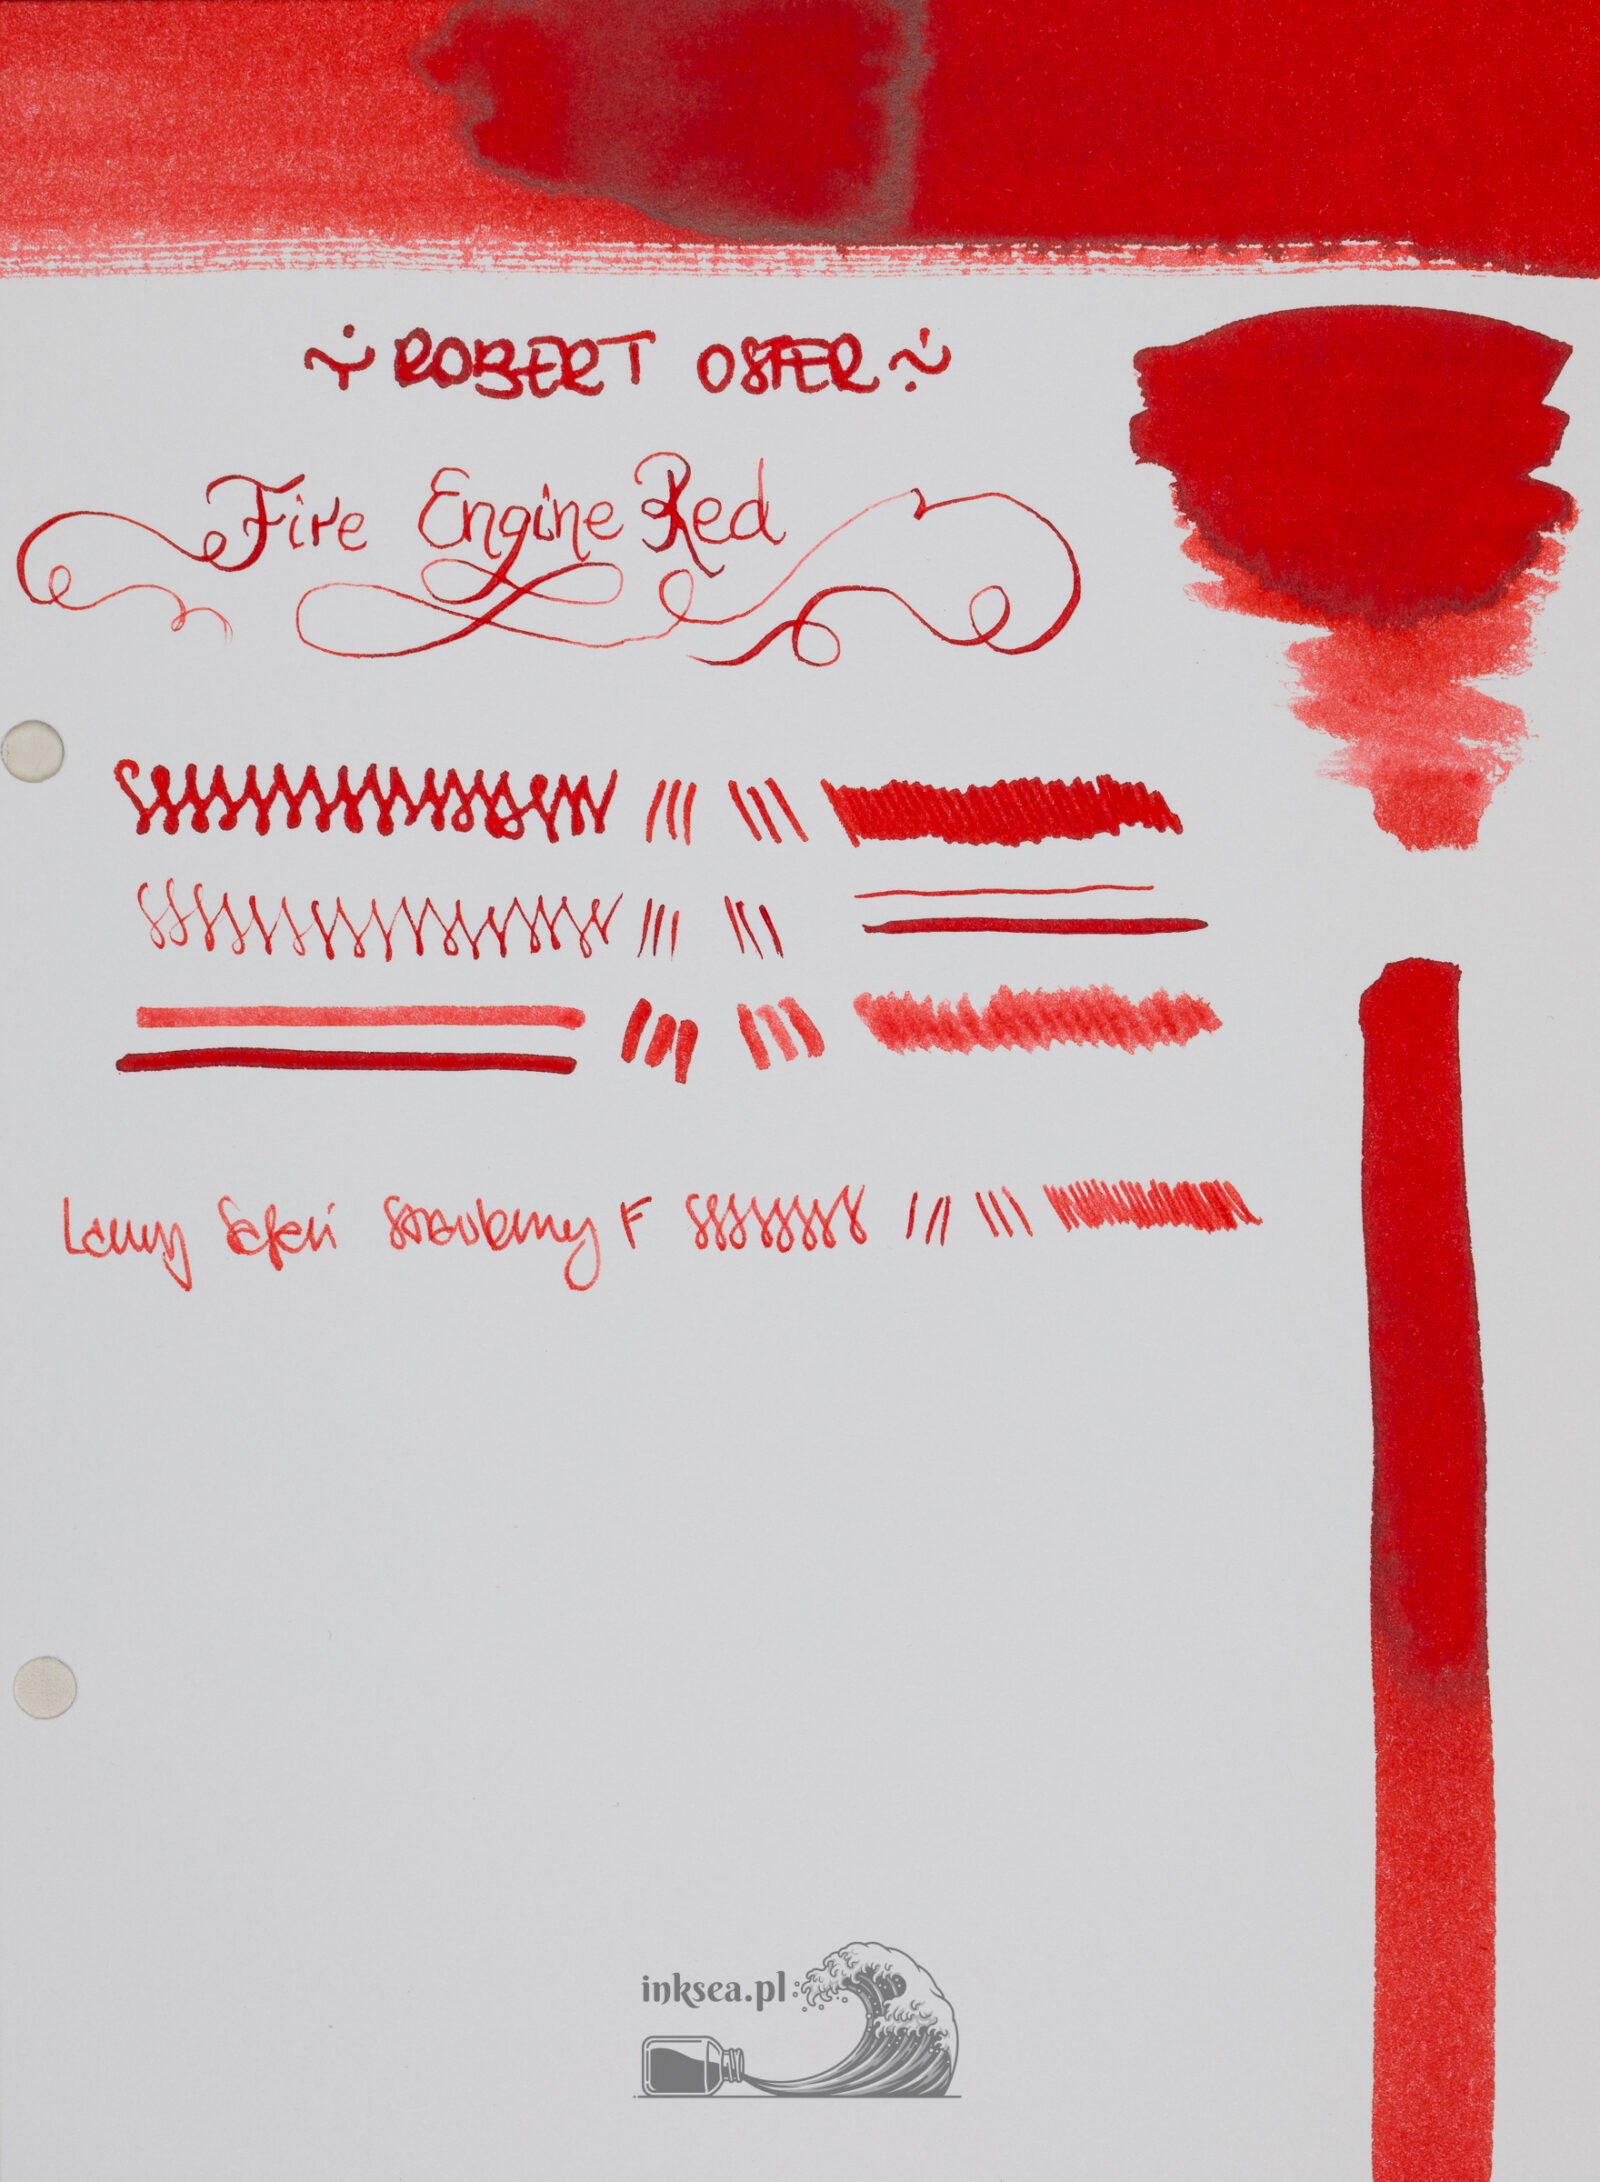 ROBERT OSTER
Fire Engine Red
Lamy Safari Strawberry F
inksea.pl